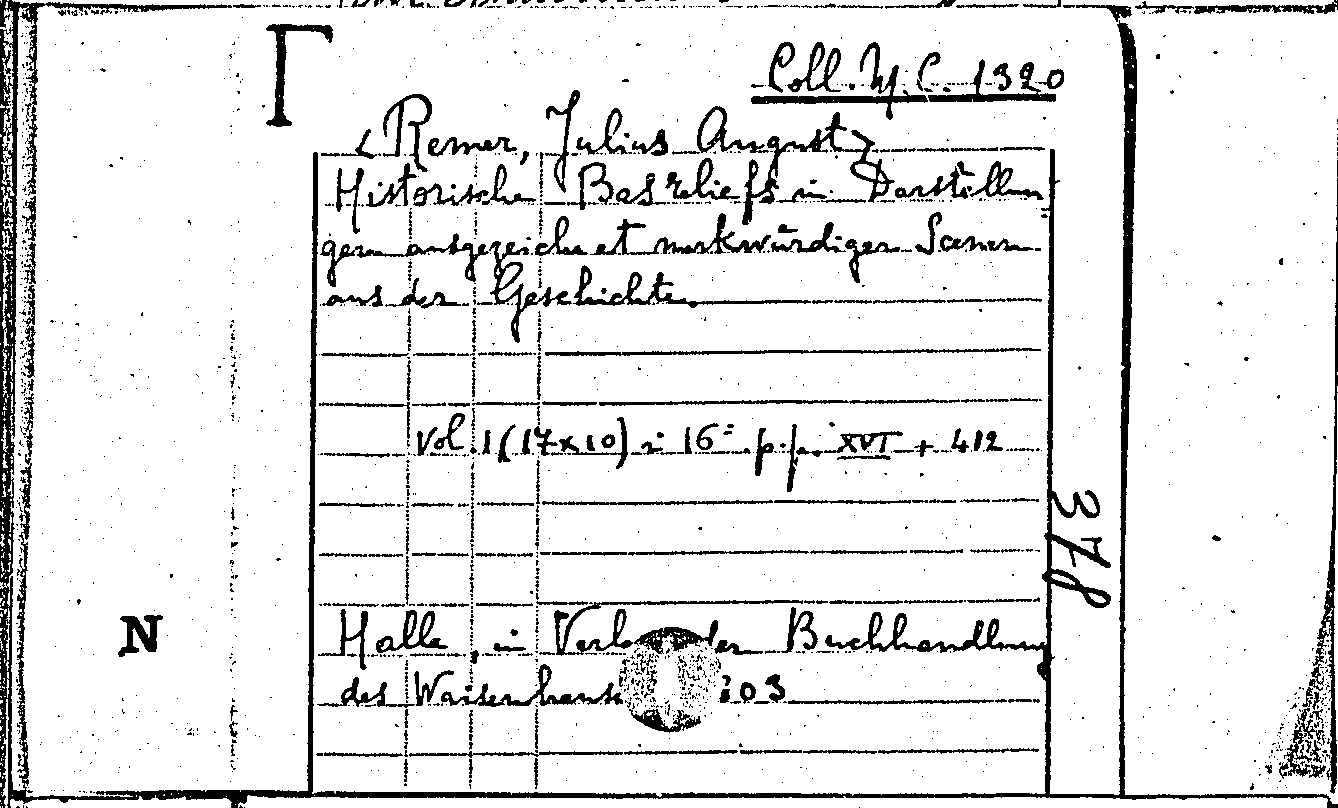 Coll. M. C. 1320
<Remer, Julius August>
Historische Basreliefs in Darstellun=
gen ausgezeichnet merkwürdiger Scenen
aus der Geschichte.
Vol. 1 (17×10) in 16º p.p. XVI + 412
378
N
Halle, in der Buchhandlung
des